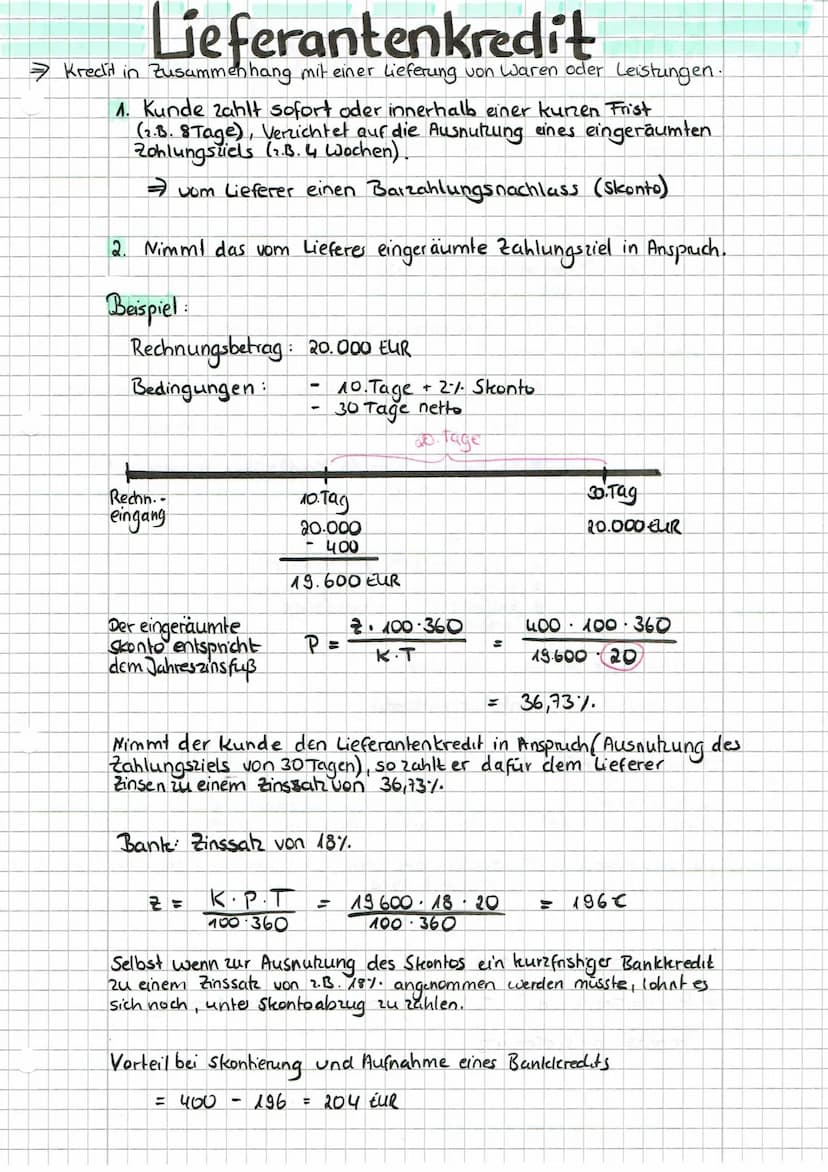 Lieferantenkredit
⇒ Kredit in Zusammenhang mit einer Lieferung von Waren oder Leistungen.
1. Kunde zahlt sofort oder innerhalb einer kurzen Frist
(z.B. 8 Tage), Verzichtet auf die Ausnutzung eines eingeräumten
Zahlungsziels (z.B. 4 Wochen).
⇒ vom Lieferer einen Barzahlungsnachlass (Skonto)
2. Nimmt das vom Lieferes eingeräumte Zahlungsziel in Anspruch.
Beispiel:
Rechnungsbetrag: 20.000 EUR
Bedingungen: - 10.Tage + 2% Skonto
- 30 Tage netto
20.Tage
Rechn.- 10.Tag 30.Tag
eingang 20.000 20.000 EUR
- 400
19.600 EUR
Der eingeräumte
Skonto entspricht
dem Jahreszinsfuß
P = z · 100 · 360 / K·T = 400 · 100 · 360 / 19.600 · 20
= 36,73%.
Nimmt der Kunde den Lieferantenkredit in Anspruch (Ausnutzung des
Zahlungsziels von 30 Tagen), so zahlt er dafür dem Lieferer
Zinsen zu einem Zinssatz von 36,73%.
Bank: Zinssatz von 18%.
z = K·P·T / 100·360 = 19600 · 18 · 20 / 100 · 360 = 196€
Selbst wenn zur Ausnutzung des Skontos ein kurzfristiger Bankkredit
zu einem Zinssatz von z.B. 18% angenommen werden müsste, lohnt es
sich noch, unter Skontoabzug zu zahlen.
Vorteil bei Skontierung und Aufnahme eines Bankkredits
= 400 - 196 = 204 EUR